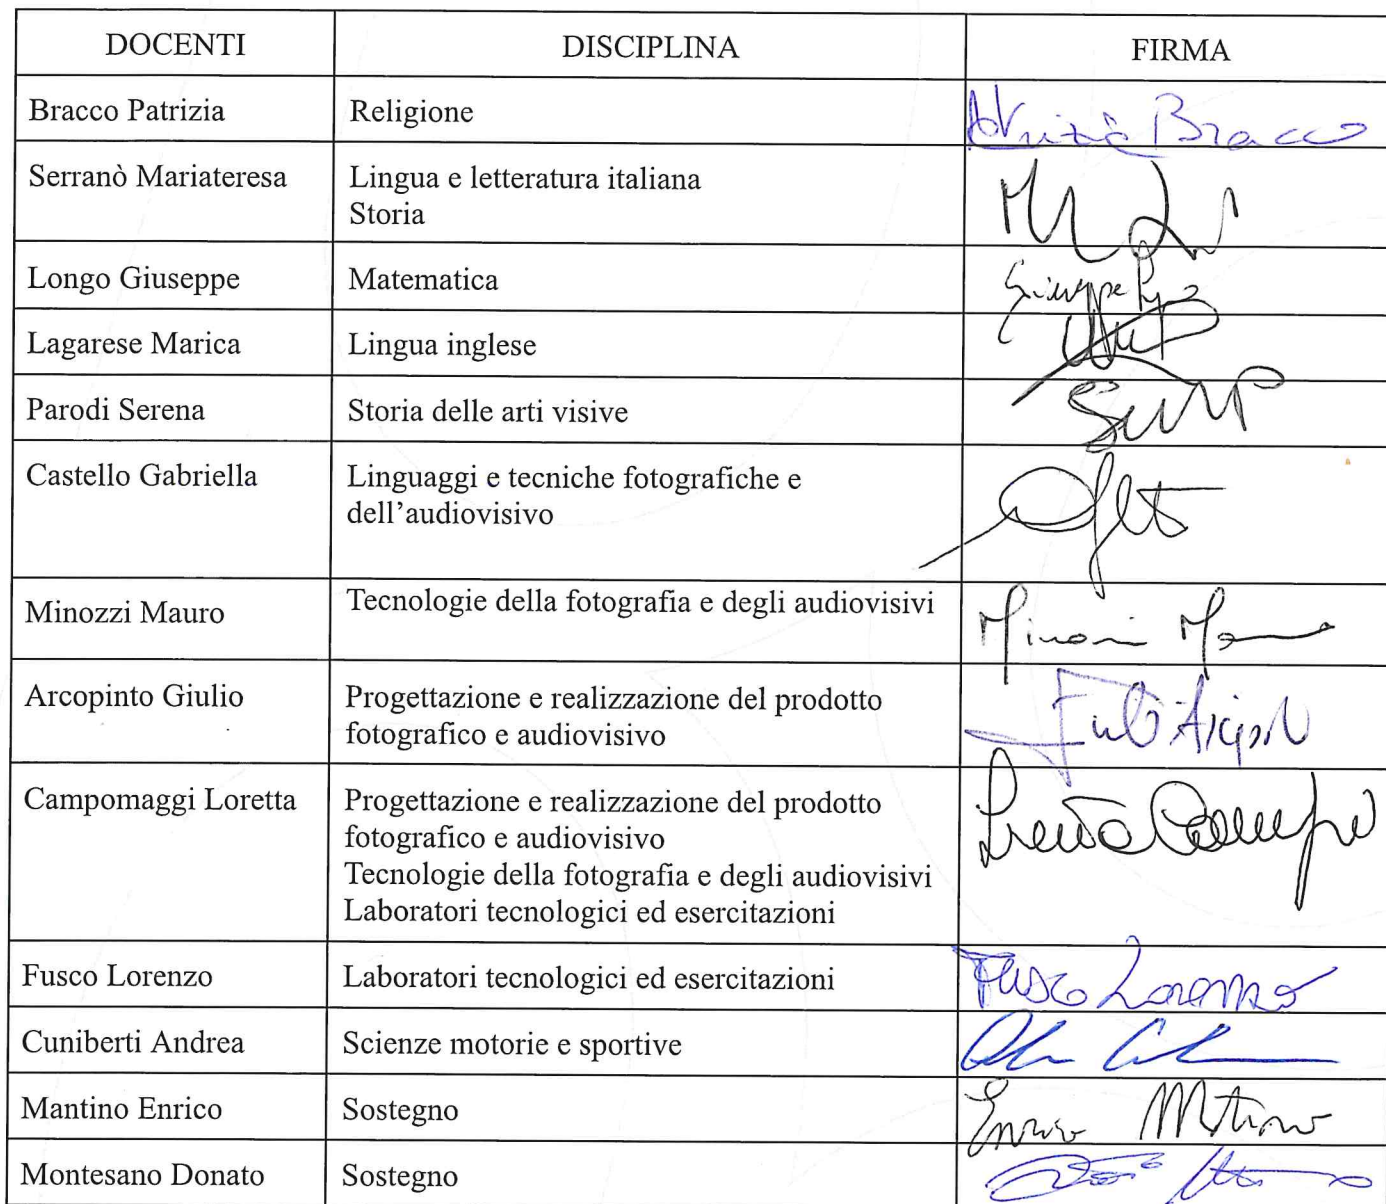 DOCENTI DISCIPLINA FIRMA
Bracco Patrizia Religione Patrizia Bracco
Serranò Mariateresa Lingua e letteratura italiana
Storia
Longo Giuseppe Matematica Giuseppe
Lagarese Marica Lingua inglese
Parodi Serena Storia delle arti visive
Castello Gabriella Linguaggi e tecniche fotografiche e
dell’audiovisivo
Minozzi Mauro Tecnologie della fotografia e degli audiovisivi
Arcopinto Giulio Progettazione e realizzazione del prodotto
fotografico e audiovisivo
Campomaggi Loretta Progettazione e realizzazione del prodotto
fotografico e audiovisivo
Tecnologie della fotografia e degli audiovisivi
Laboratori tecnologici ed esercitazioni
Fusco Lorenzo Laboratori tecnologici ed esercitazioni Fusco Lorenzo
Cuniberti Andrea Scienze motorie e sportive
Mantino Enrico Sostegno Enrico Mantino
Montesano Donato Sostegno